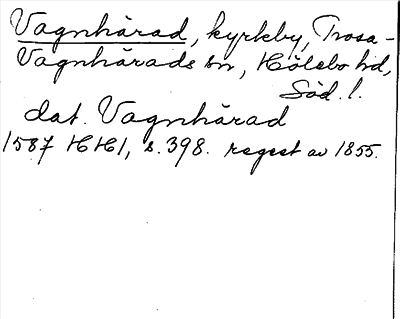 Vagnhärad, kyrkby, Trosa-
Vagnhärads sn, Hölebo hd,
Söd. l.
dat. Vagnhärad
1587 HH1, s. 398. regest av 1855.